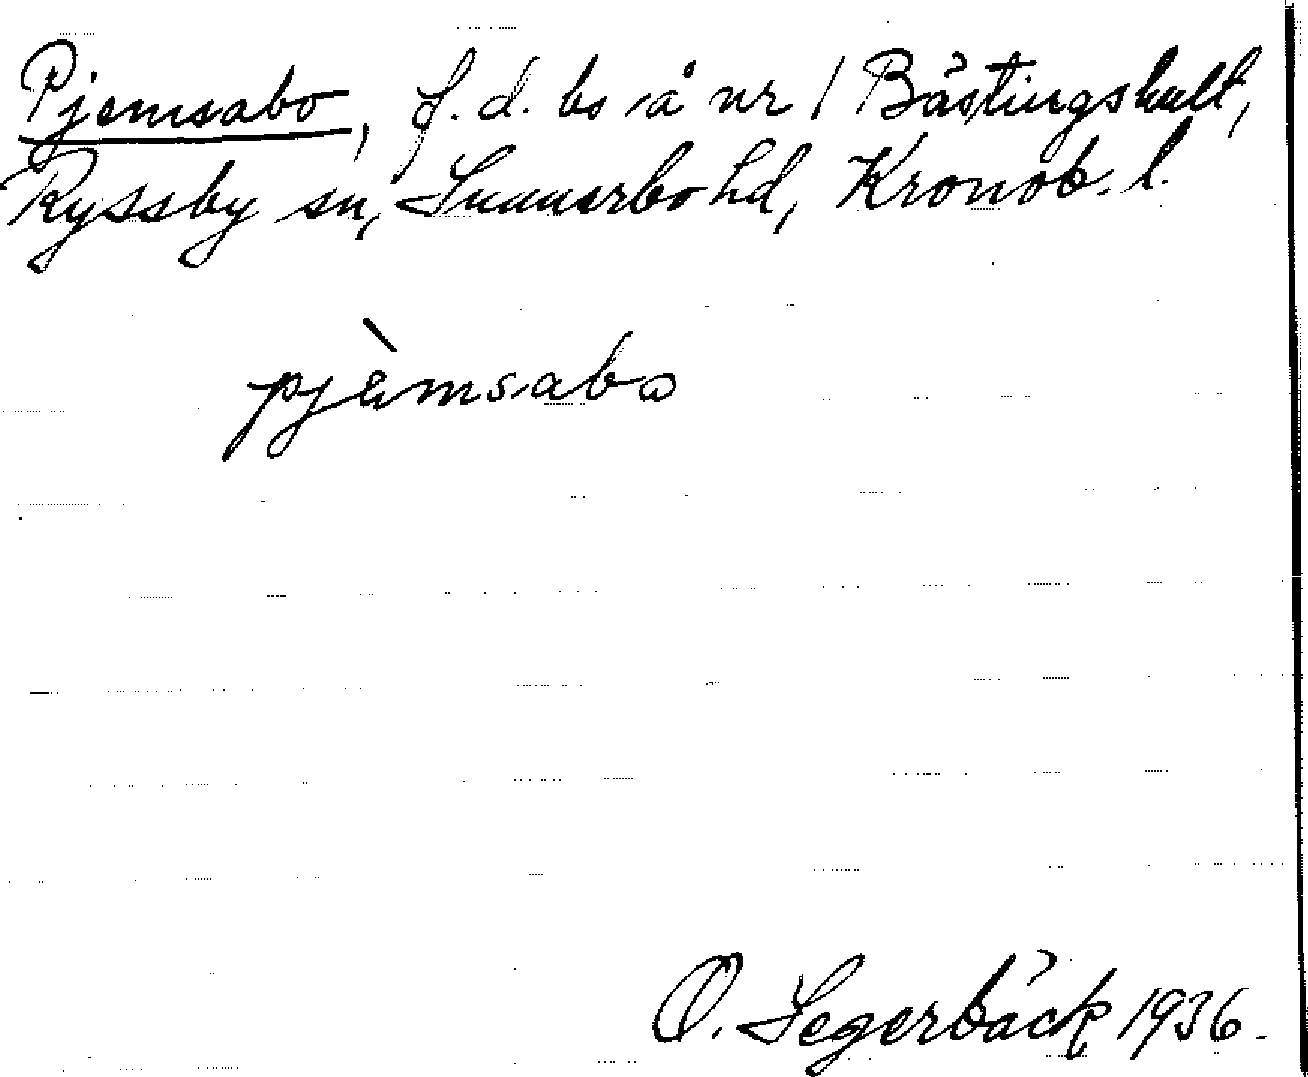 Pjemsabo, f.d. bs å nr 1 Bästingshult,
Ryssby sn, Sunnerbo hd, Kronob. l.
pjèmsabo
O. Segerbäck 1936.